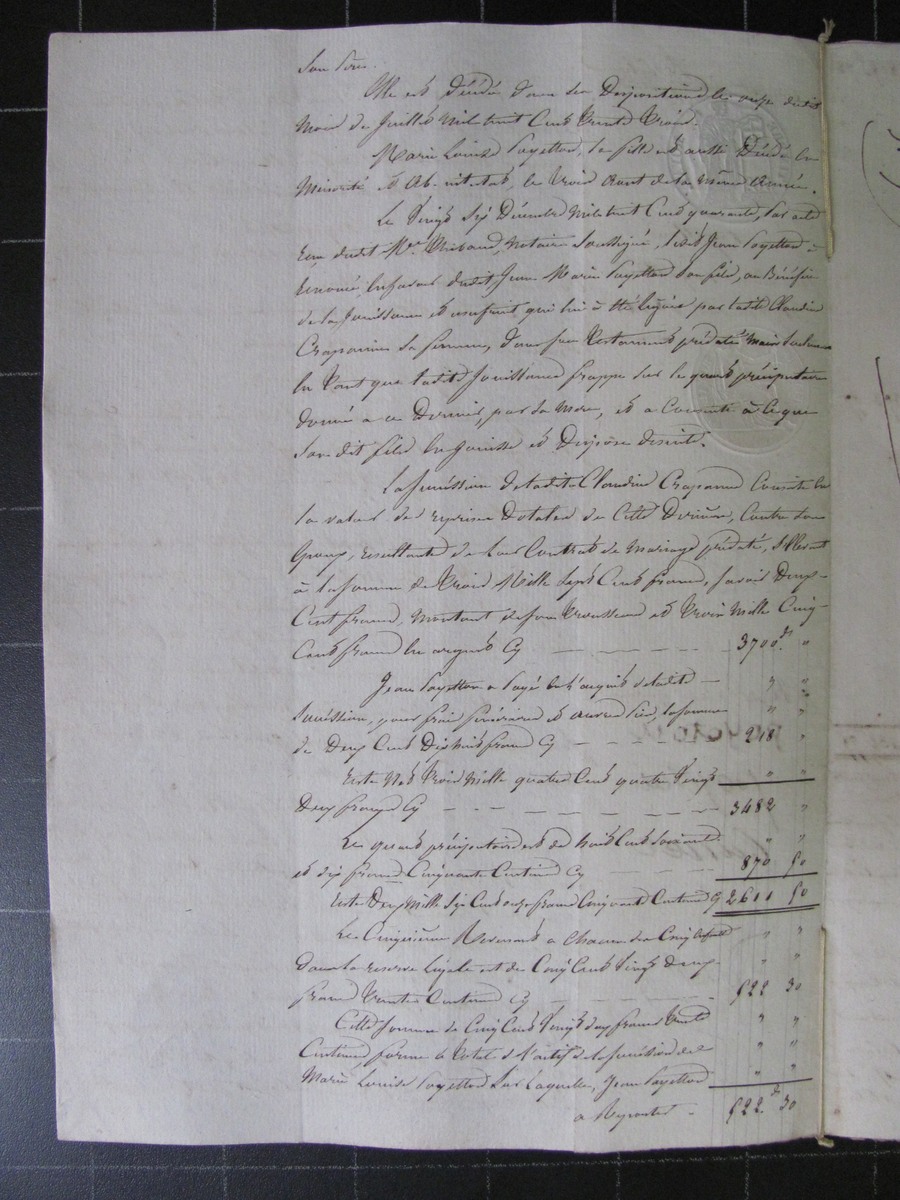 Son Père.
Elle est décédée dans ses Dispositions le onze dudit
Mois de Juillet Mil huit Cent trente trois.
Marie Louise Payetton, sa fille est aussi Décédée en
Minorité et Ab-intestat, le trois Aout de la même Année.
Le Vingt Six Décembre Mil huit Cent quarante, par acte
Reçu dudit Me. Thibaud, Notaire Soussigné, ledit Jean Payetton à
Renoncé, en faveur dudit Jean Marie Payetton son fils, au Bénéfice
de la Jouissance et usufruit qui lui à été légués par ladite Claudine
Craponne sa femme, dans son Testament prédaté, mais seulement
en tant que ladite Jouissance frappe sur le quart préciputaire
donné a ce Dernier, par sa Mère, et a Consenti à ce que
Son dit fils en Jouisse et Dispose desuite.
La Succession de ladite Claudine Craponne Consiste en
la valeur des reprises Dotales de Cette Dernière, Contre son
Epoux, resultante de leur Contrat de Mariage prédaté, S'élevant
à la somme de trois Mille Sept Cent francs, Savoir Deux-
Cent francs, Montant de son trousseau et trois Mille Cinq-
Cent francs en argent Cy — 3700 f "
Jean Payetton a Payé en l'acquit de ladite — " "
Succession, pour frais funéraires et autres , la somme " "
de Deux Cent Dix huit francs Cy — 218 "
Reste Net trois Mille quatre Cent quatre Vingt " "
Deux francs Cy — 3482 "
Le quart préciputaire est de huit Cent soixante " "
et dix francs Cinquante Centimes Cy 870 50
Reste Deux Mille Six Cent onze francs Cinquante Centimes Cy 2611 50
Le Cinquième Revenant a Chacun des Cinq Enfants " "
dans la reserve légale est de Cinq Cent Vingt Deux- " "
francs trente Centimes Cy — 522 30
Cette somme de Cinq Cent Vingt deux francs trente " "
Centimes, forme le total de l'actif de la Succession de " "
Marie Louise Payetton Sur laquelle, Jean Payetton " "
a Reporter - 522 f 30